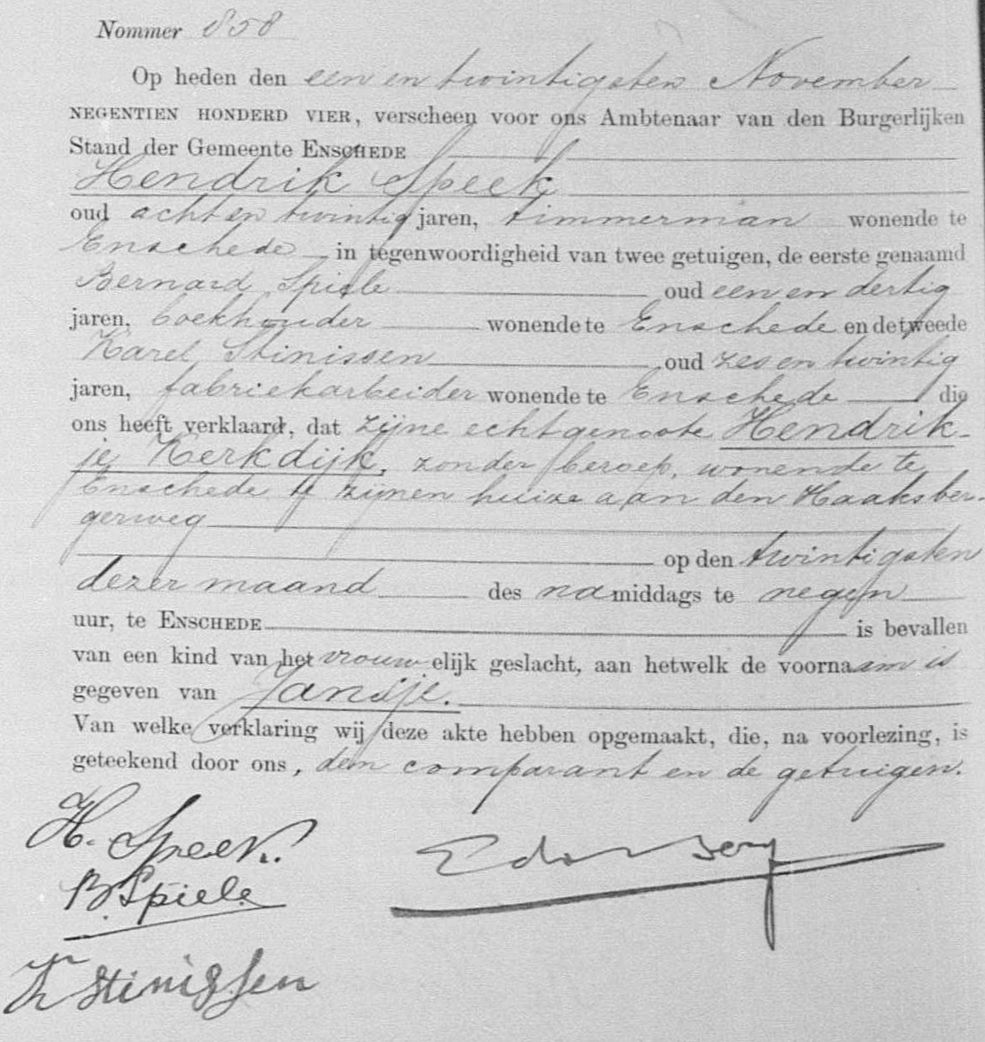 Nommer 858
Op heden den een en twintigsten November
NEGENTIEN HONDERD VIER, verscheen voor ons Ambtenaar van den Burgerlijken
Stand der Gemeente ENSCHEDE
Hendrik Speek
oud acht en twintig jaren, timmerman wonende te
Enschede in tegenwoordigheid van twee getuigen, de eerste genaamd
Bernard Spiele oud een en dertig
jaren, boekhouder wonende te Enschede en de tweede
Karel Stinissen oud zes en twintig
jaren, fabriekarbeider wonende te Enschede die
ons heeft verklaard, dat zijne echtgenoote Hendrik-
je Kerkdijk, zonder beroep, wonende te
Enschede te zijnen huize aan den Haaksber-
gerweg
op den twintigsten
dezer maand des namiddags te negen
uur, te ENSCHEDE is bevallen
van een kind van het vrouwelijk geslacht, aan hetwelk de voornaam is
gegeven van Jansje.
Van welke verklaring wij deze akte hebben opgemaakt, die, na voorlezing, is
geteekend door ons, den comparant en de getuigen.
H. Speek.
B. Spiele
K Stinissen